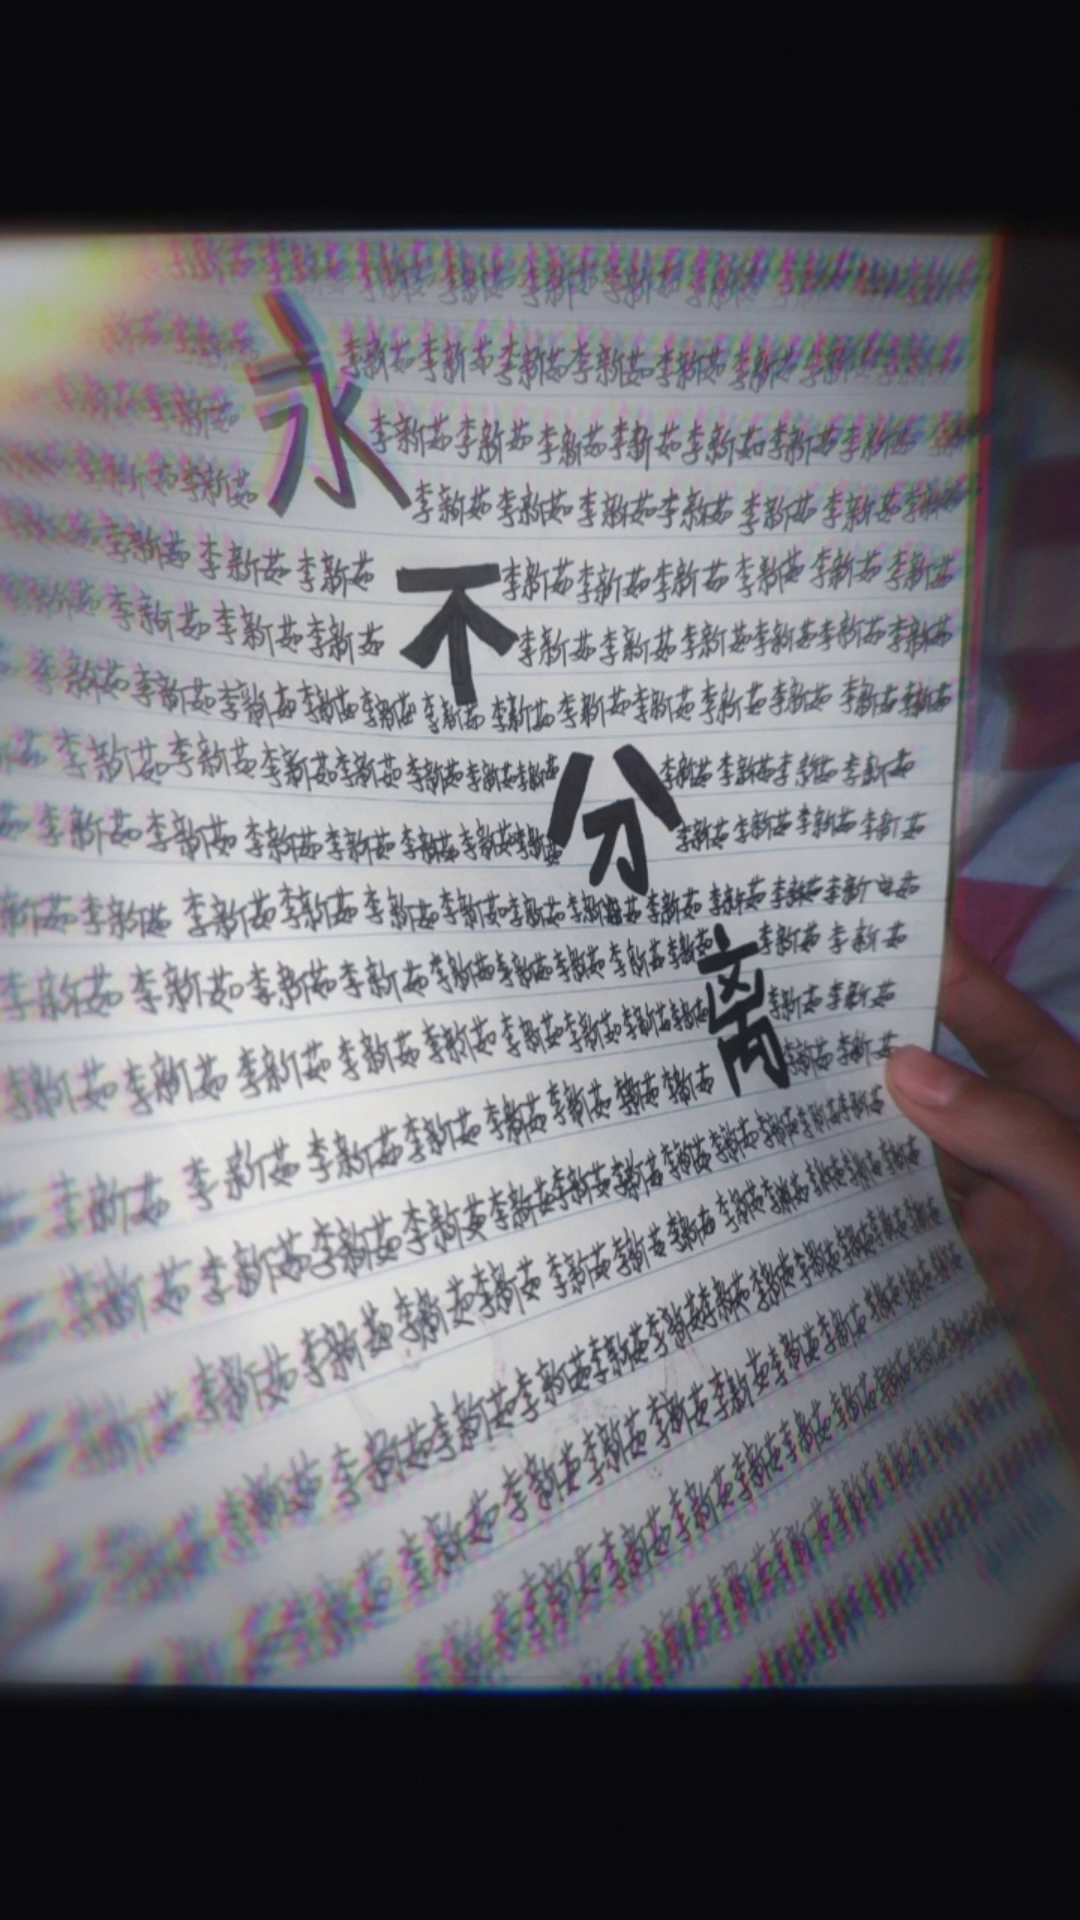 永不分离
李新茹李新茹李新茹李新茹李新茹李新茹李新茹李新茹
李新茹李新茹李新茹李新茹李新茹李新茹李新茹
李新茹李新茹李新茹李新茹李新茹李新茹李新茹李新茹
李新茹李新茹李新茹李新茹李新茹李新茹李新茹李新茹
李新茹李新茹李新茹李新茹李新茹李新茹李新茹李新茹李新茹
李新茹李新茹李新茹李新茹李新茹李新茹李新茹李新茹李新茹
李新茹李新茹李新茹李新茹李新茹李新茹李新茹李新茹李新茹李新茹李新茹李新茹李新茹
李新茹李新茹李新茹李新茹李新茹李新茹李新茹李新茹李新茹李新茹李新茹
李新茹李新茹李新茹李新茹李新茹李新茹李新茹李新茹李新茹李新茹李新茹
新茹李新茹李新茹李新茹李新茹李新茹李新茹李新茹李新茹李新茹李新茹李新茹
李新茹李新茹李新茹李新茹李新茹李新茹李新茹李新茹李新茹李新茹李新茹
李新茹李新茹李新茹李新茹李新茹李新茹李新茹李新茹李新茹李新茹李新茹
李新茹李新茹李新茹李新茹李新茹李新茹李新茹李新茹李新茹李新茹
李新茹李新茹李新茹李新茹李新茹李新茹李新茹李新茹李新茹李新茹李新茹李新茹
李新茹李新茹李新茹李新茹李新茹李新茹李新茹李新茹李新茹李新茹李新茹李新茹
李新茹李新茹李新茹李新茹李新茹李新茹李新茹李新茹李新茹李新茹李新茹
李新茹李新茹李新茹李新茹李新茹李新茹李新茹李新茹
李新茹李新茹李新茹李新茹李新茹李新茹